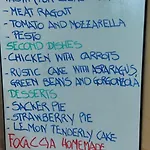 - MEAT RAGOUT
- TOMATO AND MOZZARELLA
- PESTO
SECOND DISHES
- CHICKEN WITH CARROTS
- RUSTIC CAKE WITH ASPARAGUS,
GREEN BEANS AND GORGONZOLA
DESSERTS
- SACKER PIE
- STRAWBERRY PIE
- LEMON TENDERLY CAKE
FOCACCIA HOMEMADE